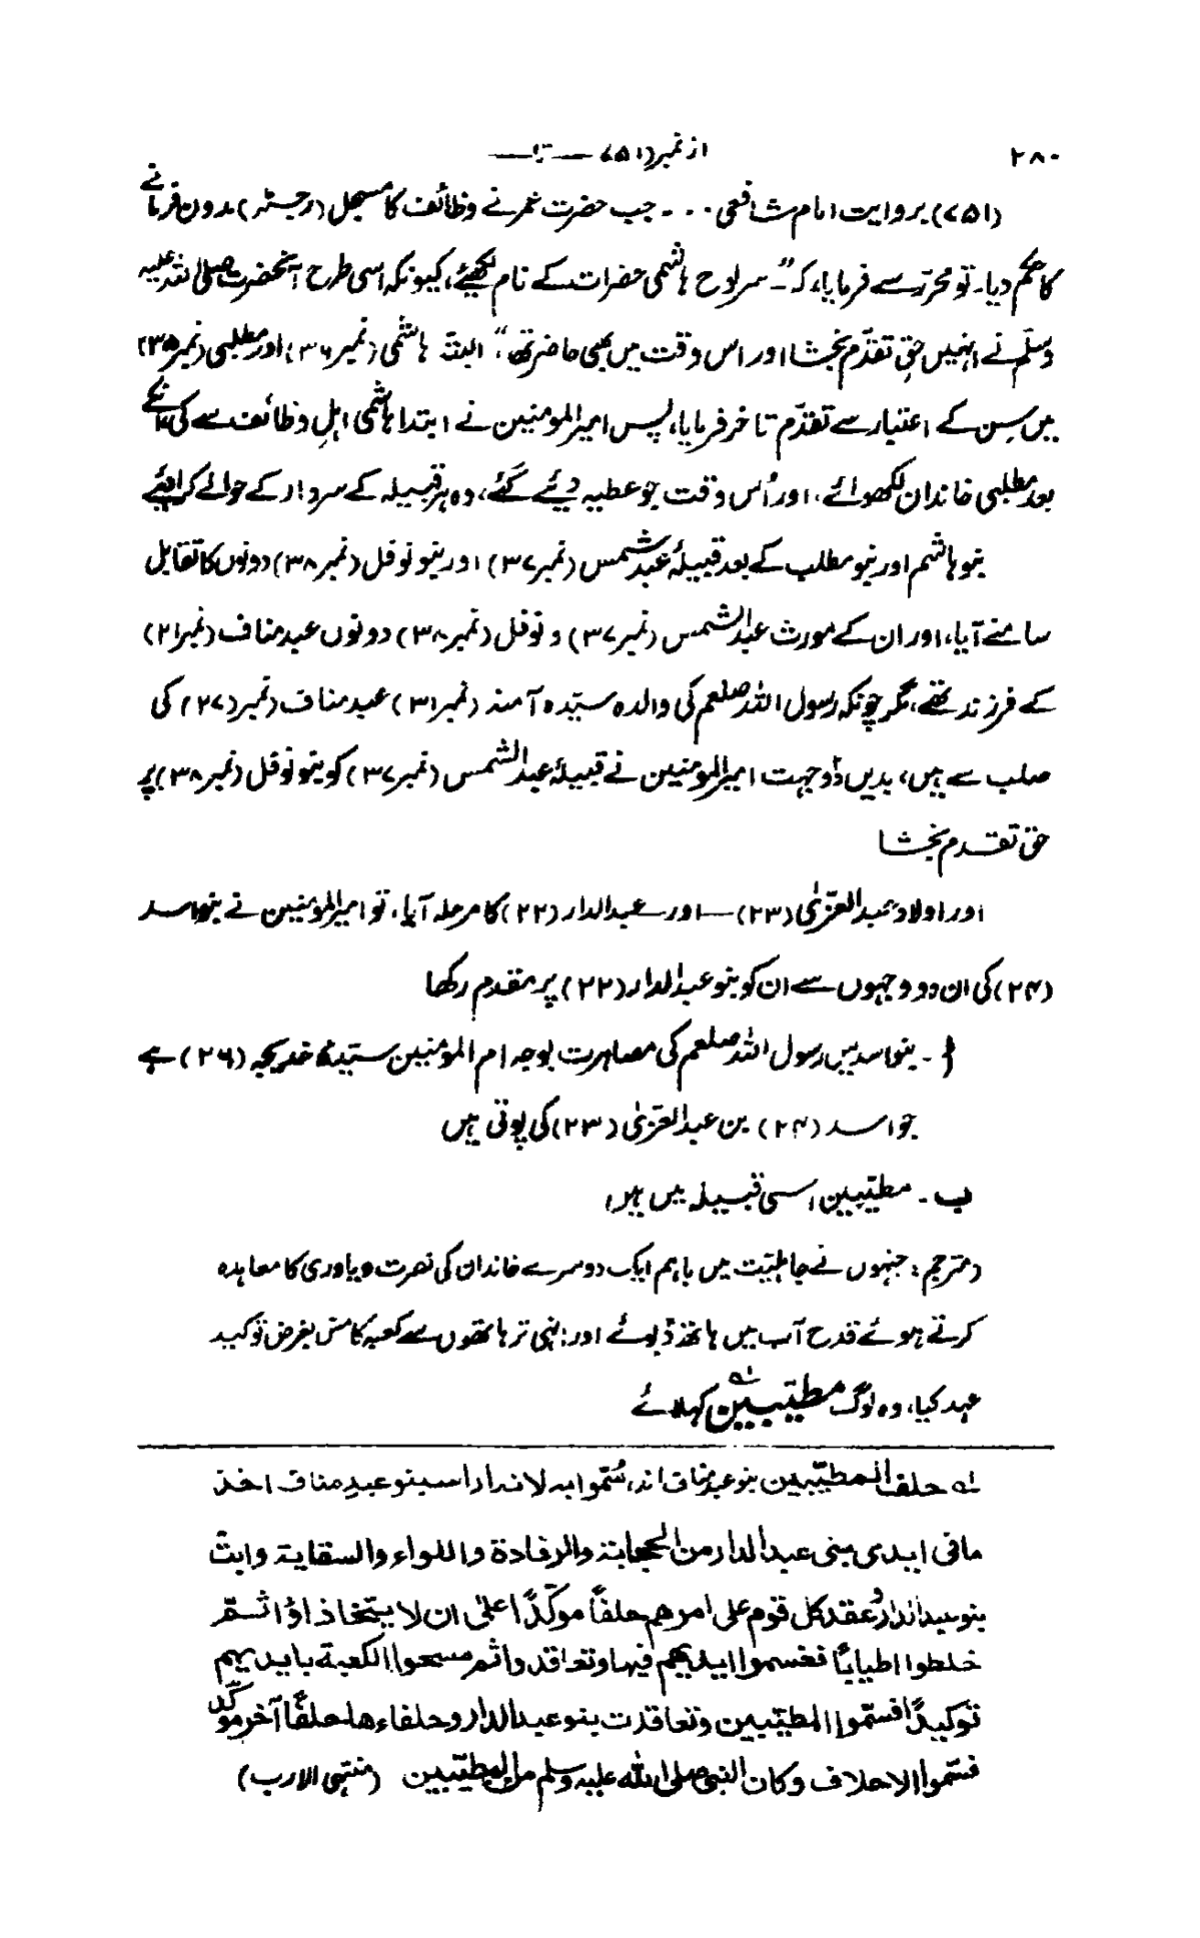 ۲۸۰ از نمبر (۷۵۱) — تا —
(۷۵۱) بروایت امام شافعی ... جب حضرت عمر نے وظائف کا مسجل (رجسٹر) مدون فرمانے
کا حکم دیا۔ تو محرّر سے فرمایا، کہ "۔ سر لوح ہاشمی حضرات کے نام لکھیئے، کیونکہ اسی طرح آنحضرت صلی اللہ علیہ
وسلّم نے انہیں حقِ تقدّم بخشا اور اس وقت میں بھی حاضر تھا"، البتہ ہاشمی (نمبر ۳۶) اور مطلبی (نمبر ۳۵)
میں سِن کے اعتبار سے تقدّم تاخر فرمایا، پس امیر المومنین نے ابتدا ہاشمی اہلِ وظائف سے کی انکے
بعد مطلبی خاندان لکھوائے، اور اُس وقت جو عطیہ دیئے گئے، وہ ہر قبیلہ کے سردار کے حوالے کرا دیئے
بنو ہاشم اور بنو مطلب کے بعد قبیلۂ عبد شمس (نمبر ۳۷) اور بنو نوفل (نمبر ۳۸) دونوں کا تقابل
سامنے آیا، اور ان کے مورث عبد الشمس (نمبر ۳۷) و نوفل (نمبر ۳۸) دونوں عبد مناف (نمبر ۲۱)
کے فرزند تھے، مگر چونکہ رسول اللہ صلعم کی والدہ سیّدہ آمنہ (نمبر ۳۱) عبد مناف (نمبر ۲۷) کی
صلب سے ہیں، بدیں دُو جہت امیر المومنین نے قبیلۂ عبد الشمس (نمبر ۳۷) کو بنو نوفل (نمبر ۳۸) پر
حق تقدم بخشا
اور اولاد عبد العزّیٰ (۲۳) — اور عبد الدار (۲۲) کا مرحلہ آیا، تو امیر المومنین نے بنو اسد
(۲۴) کی ان دو وجہوں سے ان کو بنو عبد الدار (۲۲) پر مقدم رکھا
أ۔ بنو اسد میں رسول اللہ صلعم کی مصاہرت بوجہ ام المومنین سیّدہ خدیجہ (۲۶) ہے
جو اسد (۲۴) بن عبد العزّیٰ (۲۳) کی پوتی ہیں
ب۔ مطیّبین اسی قبیلہ میں ہیں
(مترجم: جنہوں نے جاہلیّت میں باہم ایک دوسرے خاندان کی نصرت و یاوری کا معاہدہ
کرتے ہوئے قدح آب میں ہاتھ ڈبوئے اور انہی تر ہاتھوں سے کعبہ کا مس بغرض توکید
عہد کیا، وہ لوگ مطیّبین لہ کہلائے
لہ حلف المطیّبین بنو عبد مناف اند، سُمّوا بہ لانہ اراد اسد بنو عبد مناف اخذ
ما فی ایدی بنی عبد الدار من الحجابة والرفادة واللواء والسقایة وابت
بنو عبد الدار وعقد کل قوم علی امرهم حلفاً موکّدًا علیٰ ان لا یتخاذلوا ثمّ
خلطوا اطیابًا فغمسوا ایدیهم فیها وتعاقدوا ثم مسحوا الکعبة بایدیهم
توکیدًا فسمّوا المطیّبین وتعاقدت بنو عبد الدار وحلفاءها حلفًا آخر موکّد
فسمّوا الاحلاف وکان النبی صلی اللہ علیہ وسلم من المطیّبین (منتہی الارب)